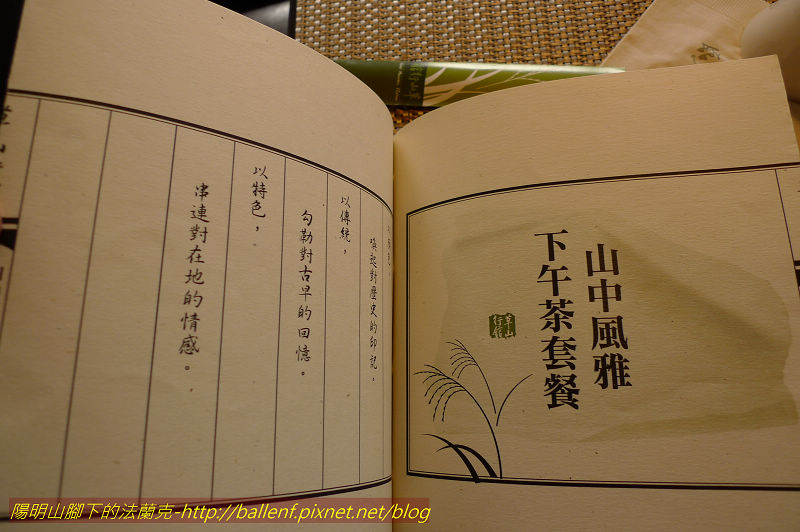 山中風雅
下午茶套餐
草山
行館
喚起對歷史的印記,
以傳統,
勾勒對古早的回憶。
以特色,
串連對在地的情感。
陽明山腳下的法蘭克-http://ballenf.pixnet.net/blog